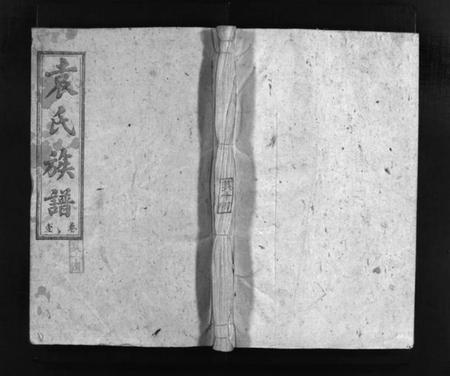 袁氏族譜
卷壹